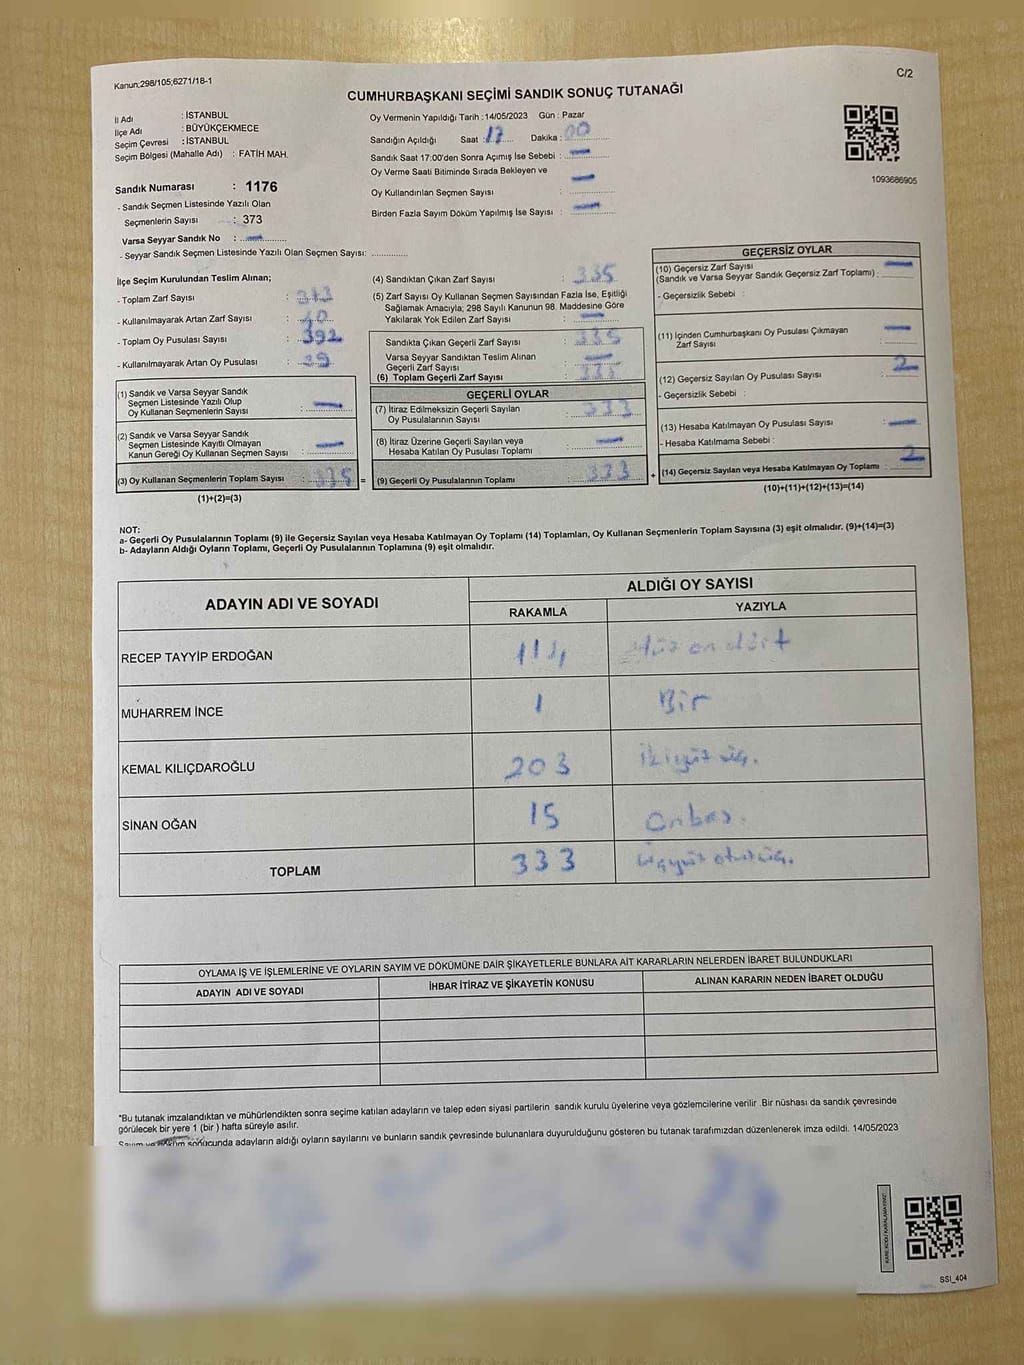 Kanun:298/105;6271/18-1
C/2
CUMHURBAŞKANI SEÇİMİ SANDIK SONUÇ TUTANAĞI
İl Adı : İSTANBUL
İlçe Adı : BÜYÜKÇEKMECE
Seçim Çevresi : İSTANBUL
Seçim Bölgesi (Mahalle Adı) : FATİH MAH.
Oy Vermenin Yapıldığı Tarih :14/05/2023 Gün : Pazar
Sandığın Açıldığı Saat : 17 Dakika : 00
Sandık Saat 17:00'den Sonra Açımış İse Sebebi : —
Oy Verme Saati Bitiminde Sırada Bekleyen ve —
Oy Kullandırılan Seçmen Sayısı :
Birden Fazla Sayım Döküm Yapılmış İse Sayısı : —
1093686905
Sandık Numarası : 1176
- Sandık Seçmen Listesinde Yazılı Olan
Seçmenlerin Sayısı : 373
Varsa Seyyar Sandık No : —
- Seyyar Sandık Seçmen Listesinde Yazılı Olan Seçmen Sayısı:
İlçe Seçim Kurulundan Teslim Alınan;
- Toplam Zarf Sayısı :
- Kullanılmayarak Artan Zarf Sayısı : 40
- Toplam Oy Pusulası Sayısı : 392
- Kullanılmayarak Artan Oy Pusulası :
(1) Sandık ve Varsa Seyyar Sandık
Seçmen Listesinde Yazılı Olup
Oy Kullanan Seçmenlerin Sayısı : —
(2) Sandık ve Varsa Seyyar Sandık
Seçmen Listesinde Kayıtlı Olmayan
Kanun Gereği Oy Kullanan Seçmen Sayısı : —
(3) Oy Kullanan Seçmenlerin Toplam Sayısı : 335 =
(1)+(2)=(3)
(4) Sandıktan Çıkan Zarf Sayısı : 335
(5) Zarf Sayısı Oy Kullanan Seçmen Sayısından Fazla İse, Eşitliği
Sağlamak Amacıyla; 298 Sayılı Kanunun 98. Maddesine Göre
Yakılarak Yok Edilen Zarf Sayısı : —
Sandıkta Çıkan Geçerli Zarf Sayısı : 335
Varsa Seyyar Sandıktan Teslim Alınan
Geçerli Zarf Sayısı : —
(6) Toplam Geçerli Zarf Sayısı : 335
GEÇERLİ OYLAR
(7) İtiraz Edilmeksizin Geçerli Sayılan
Oy Pusulalarının Sayısı : 333
(8) İtiraz Üzerine Geçerli Sayılan veya
Hesaba Katılan Oy Pusulası Toplamı : —
(9) Geçerli Oy Pusulalarının Toplamı : 333 +
GEÇERSİZ OYLAR
(10) Geçersiz Zarf Sayısı
(Sandık ve Varsa Seyyar Sandık Geçersiz Zarf Toplamı) : —
- Geçersizlik Sebebi :
(11) İçinden Cumhurbaşkanı Oy Pusulası Çıkmayan
Zarf Sayısı : —
(12) Geçersiz Sayılan Oy Pusulası Sayısı : 2
- Geçersizlik Sebebi :
(13) Hesaba Katılmayan Oy Pusulası Sayısı : —
- Hesaba Katılmama Sebebi :
(14) Geçersiz Sayılan veya Hesaba Katılmayan Oy Toplamı : 2
(10)+(11)+(12)+(13)=(14)
NOT:
a- Geçerli Oy Pusulalarının Toplamı (9) ile Geçersiz Sayılan veya Hesaba Katılmayan Oy Toplamı (14) Toplamları, Oy Kullanan Seçmenlerin Toplam Sayısına (3) eşit olmalıdır. (9)+(14)=(3)
b- Adayların Aldığı Oyların Toplamı, Geçerli Oy Pusulalarının Toplamına (9) eşit olmalıdır.
ADAYIN ADI VE SOYADI
ALDIĞI OY SAYISI
RAKAMLA YAZIYLA
RECEP TAYYİP ERDOĞAN 114 Yüz on dört
MUHARREM İNCE 1 Bir
KEMAL KILIÇDAROĞLU 203 ikiyüz üç.
SİNAN OĞAN 15 Onbeş.
TOPLAM 333 üçyüz otuz üç.
OYLAMA İŞ VE İŞLEMLERİNE VE OYLARIN SAYIM VE DÖKÜMÜNE DAİR ŞİKAYETLERLE BUNLARA AİT KARARLARIN NELERDEN İBARET BULUNDUKLARI
ADAYIN ADI VE SOYADI İHBAR İTİRAZ VE ŞİKAYETİN KONUSU ALINAN KARARIN NEDEN İBARET OLDUĞU
*Bu tutanak imzalandıktan ve mühürlendikten sonra seçime katılan adayların ve talep eden siyasi partilerin sandık kurulu üyelerine veya gözlemcilerine verilir .Bir nüshası da sandık çevresinde
görülecek bir yere 1 (bir ) hafta süreyle asılır.
Sayım ve döküm sonucunda adayların aldığı oyların sayılarını ve bunların sandık çevresinde bulunanlara duyurulduğunu gösteren bu tutanak tarafımızdan düzenlenerek imza edildi. 14/05/2023
KARE KODU KARALAMAYINIZ!
SSI_404